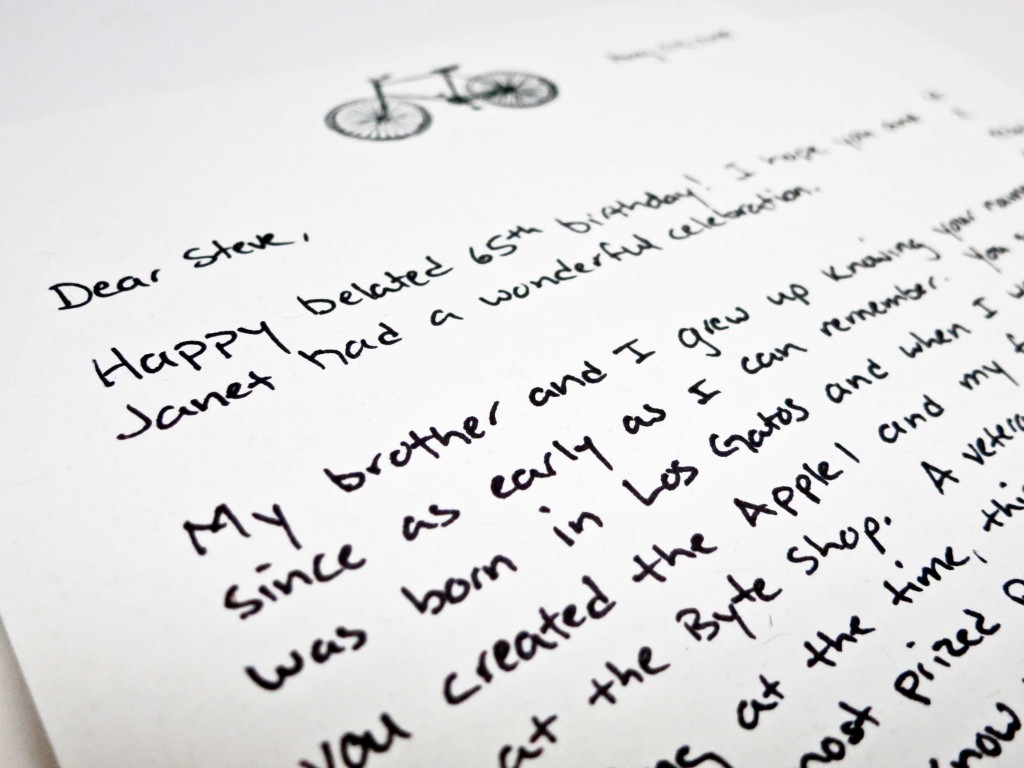 Dear Steve,
Happy belated 65th birthday! I hope you and
Janet had a wonderful celebration.
My brother and I grew up knowing your
since as early as I can remember. You
was born in Los Gatos and when I
you created the Apple 1 and my
at the Byte Shop. A
at the time,
most prized